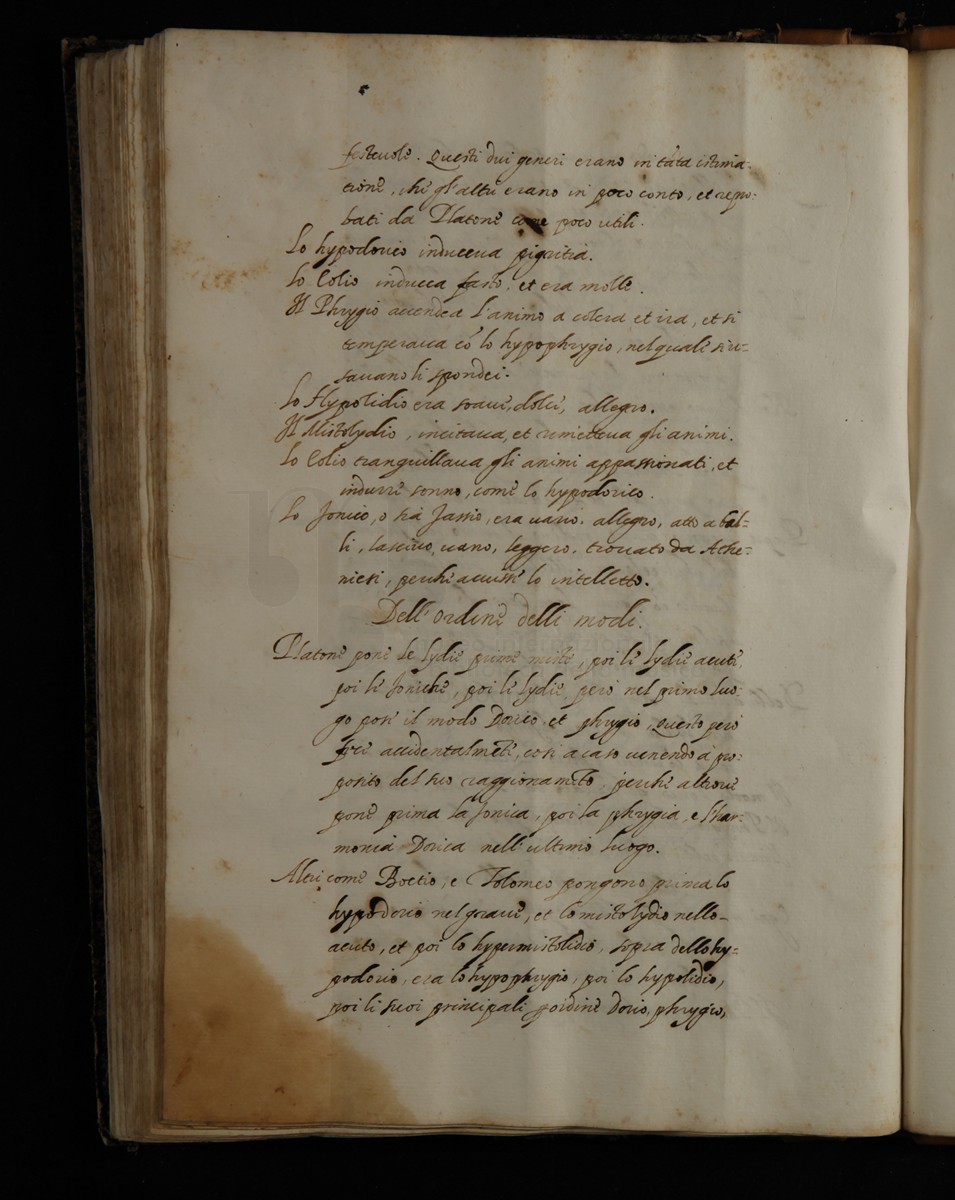 festevole. Questi dui generi erano in tāta istima-
tione, che gl'altri erano in poco conto, et repro-
bati da Platone come poco utili.
Lo hypodorico induceva pigritia.
Lo Eolio induceva fasto, et era molle.
Il Phrygio accendea l'animo a colera et ira, et si
temperava cō lo hypophrygio, nel quali si u-
savano li spondei.
Lo Hypolidio era soave, dolce, allegro.
Il Mistolydio, incitava, et remetteva gli animi.
Lo Eolio tranquillava gli animi appassionati, et
indurre sonno, come lo hypodorico.
Lo Jonico, o sia Jassio, era vario, allegro, atto a bal-
li, lascivo, vano, leggero, trovato da Athe-
niesi, perche acuisse lo intelletto.
Dell'ordine delli modi.
Platone pone le lydie prime miste, poi le lydie acute,
poi le Joniche, poi le lydie, però nel primo luo-
go pose il modo Dorico, et phrygio, questo però
fece accidentalmēte, così a caso venendo a pro-
posito del suo raggionamēto, perche altrove
pone prima la Jonica, poi la phrygia, e l'har-
monia Dorica nell'ultimo luogo.
Altri come Boetio, e Tolomeo pongono prima lo
hypodorio nel grave, et lo mistolydio nello
acuto, et poi lo hypermistolidio, sopra dello hy-
podorio, era lo hypophrygio, poi lo hypolidio,
poi li suoi principali p ordine Dorio, phrygio,